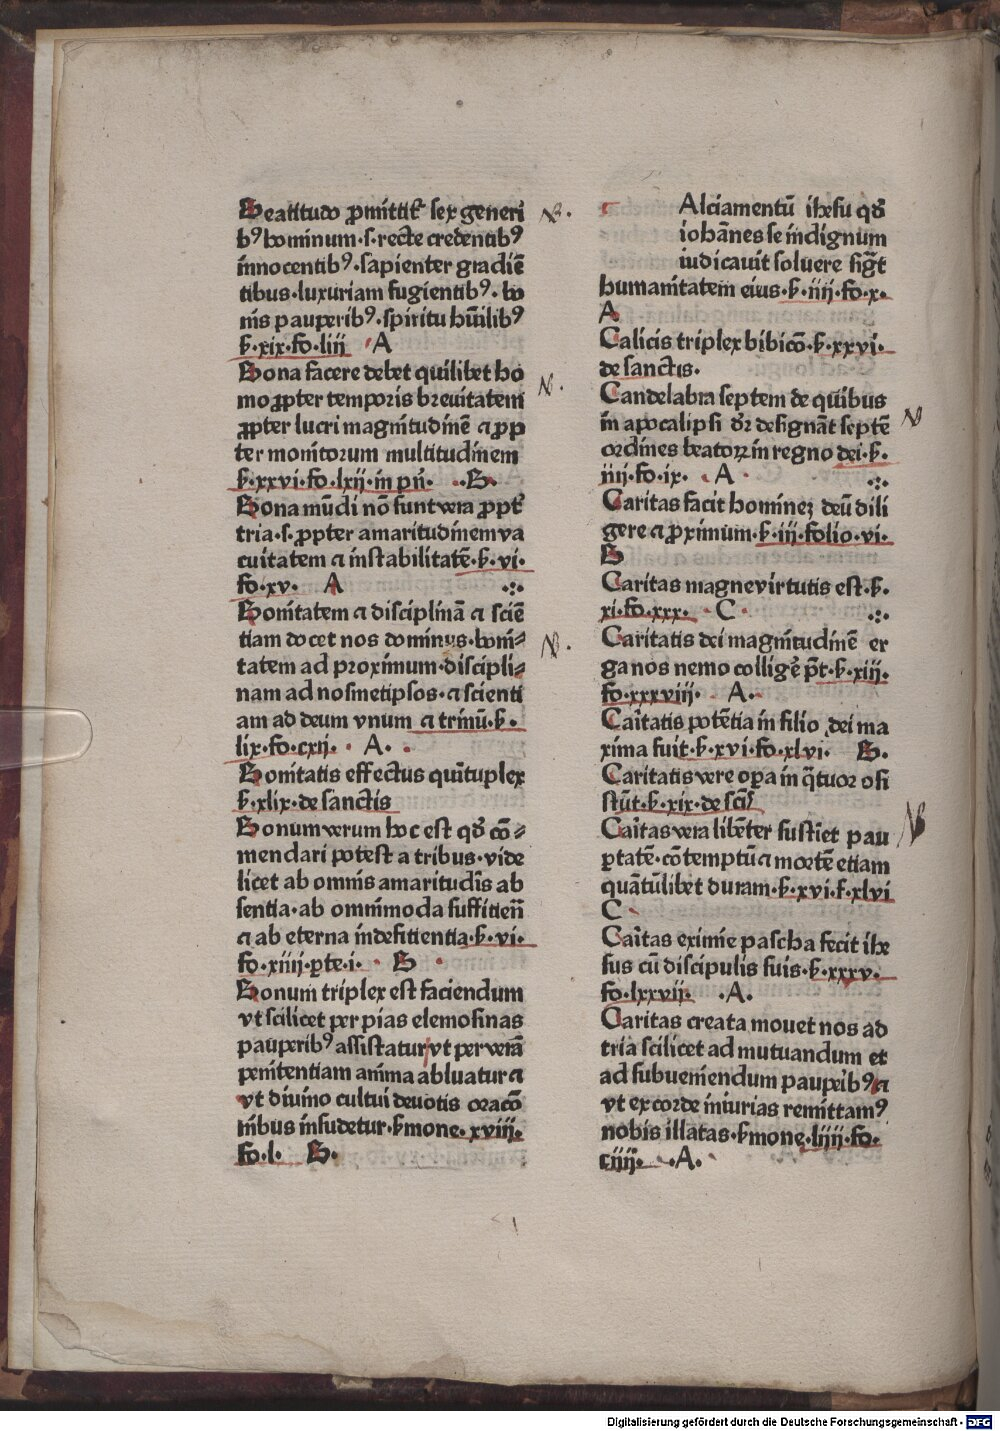 Beatitudo ꝓmittit᷑ sex generi
bꝰ hominum·s·recte credentibꝰ
innocentibꝰ·sapienter gradiē
tibus·luxuriam fugientibꝰ·bo
nis pauperibꝰ·spiritu hūilibꝰ
ẜ·xix·fo·liij A
Bona facere debet quilibet ho
mo ꝓpter temporis breuitatem
ꝓpter lucri magnitudinē ⁊ ꝓp
ter monitorum multitudinem
ẜ·xxvi·fo·lxij·in pn̄· ·B·
Bona mūdi nō sunt vera ꝓpt᷑
tria·s·ꝓpter amaritudinem va
cuitatem ⁊ instabilitatē·ẜ·vi·
fo·xv· A
Bonitatem ⁊ disciplinā ⁊ sciē
tiam docet nos dominus·boni⸗
tatem ad proximum·discipli⸗
nam ad nosmetipsos·⁊ scienti
am ad deum vnum ⁊ trinū·ẜ·
lix·fo·cxij· · A· ·
Bonitatis effectus quītuplex
ẜ·xlix·de sanctis
Bonum verum hoc est qď cō⸗
mendari potest a tribus·vide
licet ab omnis amaritudīs ab
sentia·ab omnimoda suffitien̄
⁊ ab eterna indefitientia·ẜ·vi·
fo·xiiij·ꝑte·i· · B ·
Bonum triplex est faciendum
vt scilicet per pias elemosinas
pauperibꝰ assistatur vt per verā
penitentiam anima abluatur ⁊
vt diuino cultui deuotis oracō
nibus insudetur·ẜmone·xviij·
fo·l· B·
Alciamentū ihesu qď
iohānes se indignum
iudicauit soluere sigt̄
humanitatem eius·ẜ·iiij·fo·x·
A
Calicis triplex bibicō·ẜ·xxvi·
de sanctis·
Candelabra septem de quibus
in apocalipsi dr̄ designāt septē
ordines beatoꝝ in regno dei·ẜ·
iiij·fo·ix· · A ·
Caritas facit hominez deū dili
gere ⁊ proximum·ẜ·iij·folio·vi·
B
Caritas magne virtutis est·ẜ·
xi·fo·xxx· · C ·
Caritatis dei magnitudinē er
ga nos nemo collige᷑ pt̄·ẜ·xiij·
fo·xxxviij· · A·
Caītatis potētia in filio dei ma
xima fuit·ẜ·xvi·fo·xlvi· B·
Caritatis vere oꝑa in q̄tuor osi
stūt·ẜ·xix·de scīs
Caītas vera libēter sustīet pau
ꝑtatē·cōtemptū ⁊ mortē etiam
quātūlibet duram·ẜ·xvi·f·xlvi
C
Caītas eximie pascha fecit ihe
sus cū discipulis suis·ẜ·xxxv·
fo·lxxvij· ·A·
Caritas creata mouet nos ad
tria scilicet ad mutuandum et
ad subueniendum paupeībꝰ ⁊
vt ex corde iniurias remittamꝰ
nobis illatas·ẜmone·liiij·fo·
ciiij· ·A·
NB.
N.
NB.
NB
NB
Digitalisierung gefördert durch die Deutsche Forschungsgemeinschaft - DFG